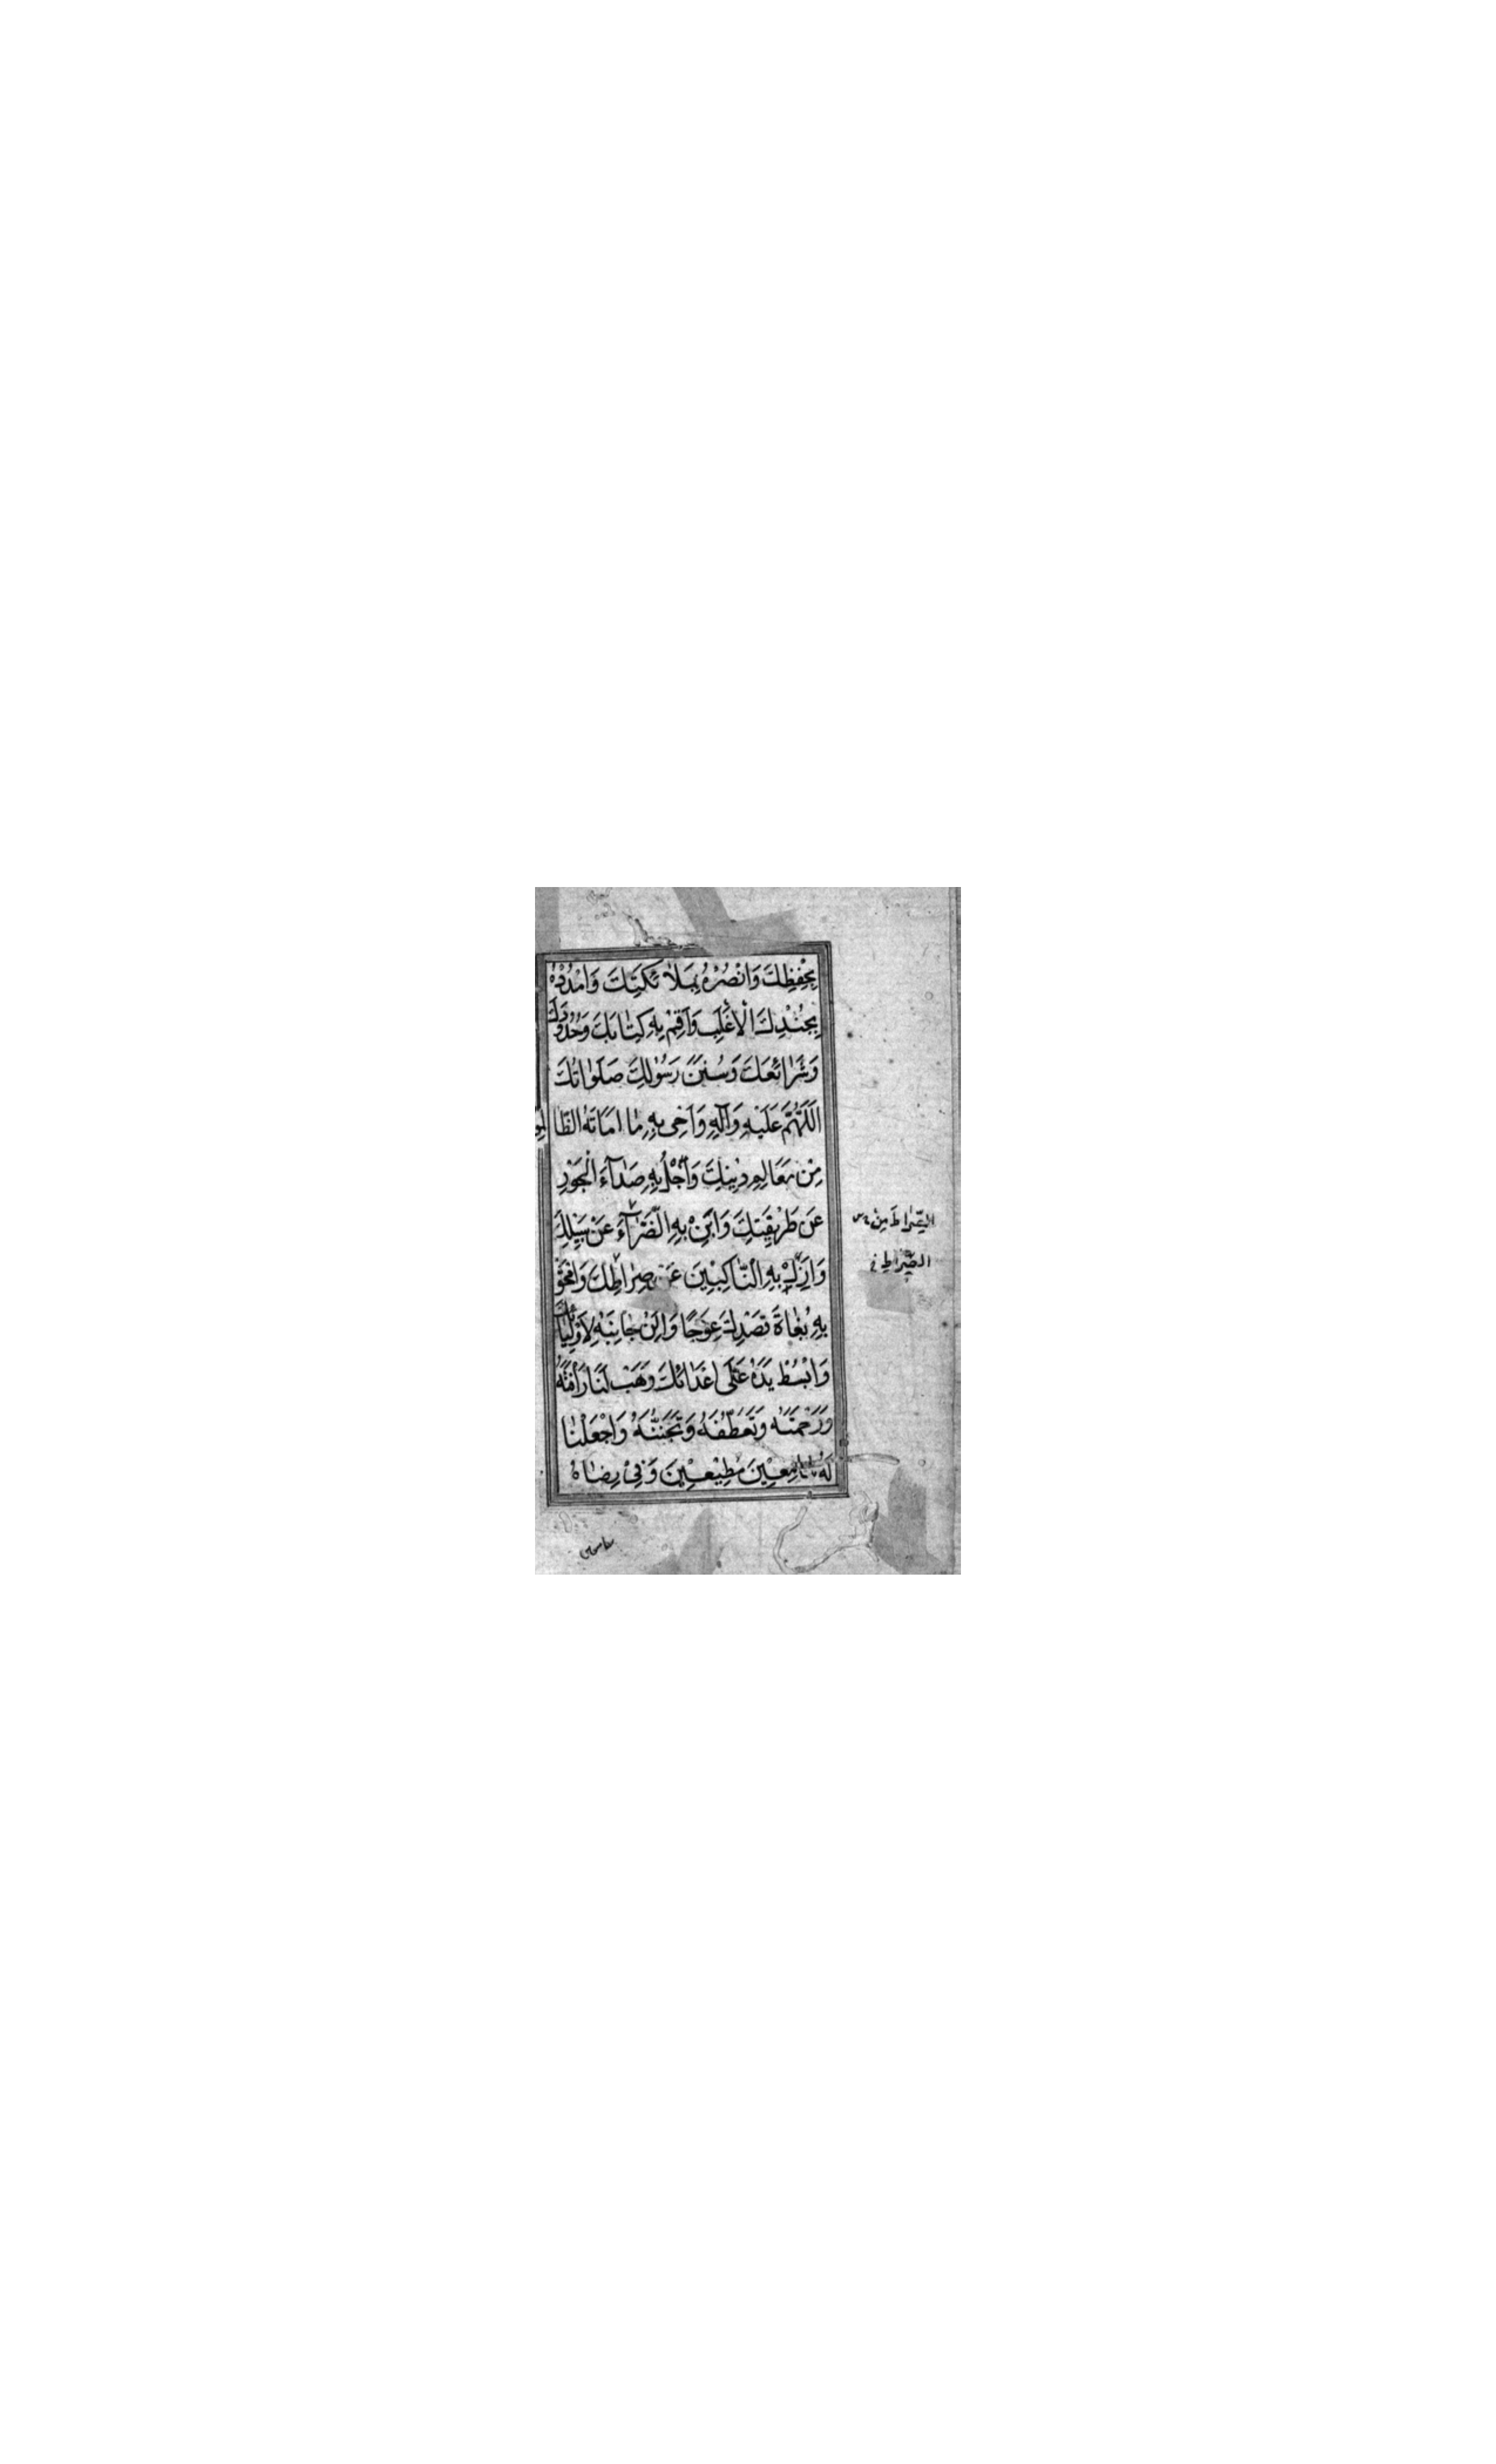 بِحِفْظِكَ وَانْصُرْهُ بِمَلاٰئِكَتِكَ وَامْدُدْهُ
بِجُنْدِكَ الْاَغْلَبِ وَاَقِمْ بِهِ كِتٰابَكَ وَحُدُودَكَ
وَشَرٰائِعَكَ وَسُنَنَ رَسُولِكَ صَلَوٰاتُكَ
اَللّٰهُمَّ عَلَيْهِ وَآلِهِ وَاَحْىِ بِهِ مٰا اَمٰاتَهُ الظّٰالِمُونَ
مِنْ مَعَالِمِ دٖينِكَ وَاجْلُ بِهِ صَدٰآءَ الْجَوْرِ
عَنْ طَرٖيقَتِكَ وَاَبِنْ بِهِ الضَّرّٰآءَ عَنْ سَبٖيلِكَ
وَاَزِلْ بِهِ النّٰاكِبٖينَ عَنْ صِرٰاطِكَ وَامْحَقْ
بِهِ بُغٰاةَ قَصْدِكَ عِوَجًا وَاَلِنْ جٰانِبَهُ لِاَوْلِيٰائِكَ
وَابْسُطْ يَدَهُ عَلٰى اَعْدَائِكَ وَهَبْ لَنٰا رَأْفَتَهُ
وَرَحْمَتَهُ وَتَعَطُّفَهُ وَتَحَنُّنَهُ وَاجْعَلْنٰا
لَهُ سٰامِعٖينَ مُطٖيعٖينَ وَفٖى رِضٰاهُ
الصِّرٰاطَ مِنْ
الصِّرٰاطِ